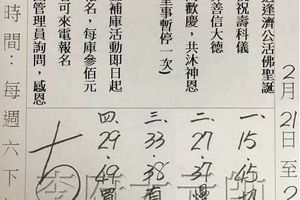 2月21日至2
逢濟公活佛聖誕
祝壽科儀
善信大德
歡慶，共沐神恩
聖事暫停一次）
補庫活動即日起
名，每庫參佰元
可來電報名
管理員詢問，感恩
時間：每週六下
一. 15. 45.
二. 27. 37.
三. 33. 38.
四. 29. 49.